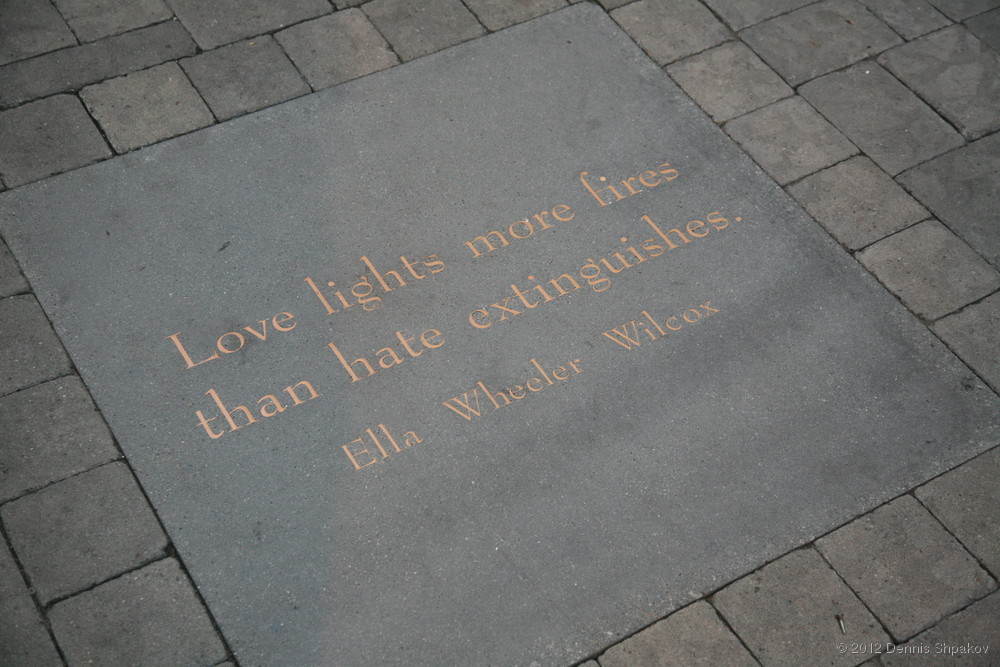 Love lights more fires
than hate extinguishes.
Ella Wheeler Wilcox
© 2012 Dennis Shpakov